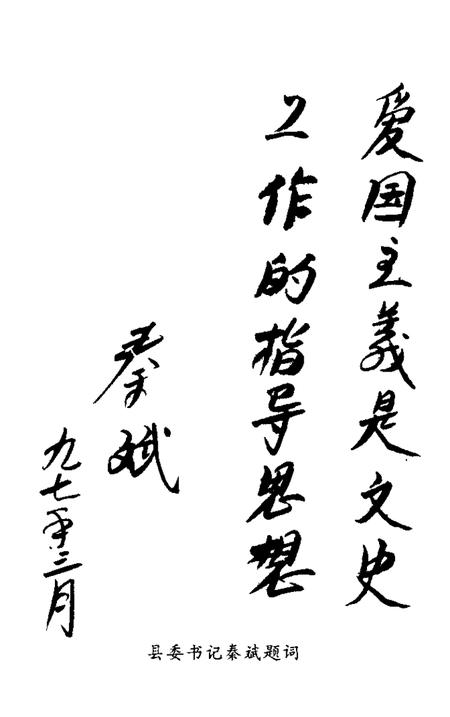 爱国主義是文史
工作的指导思想
秦斌
九七年三月
县委书记秦斌题词